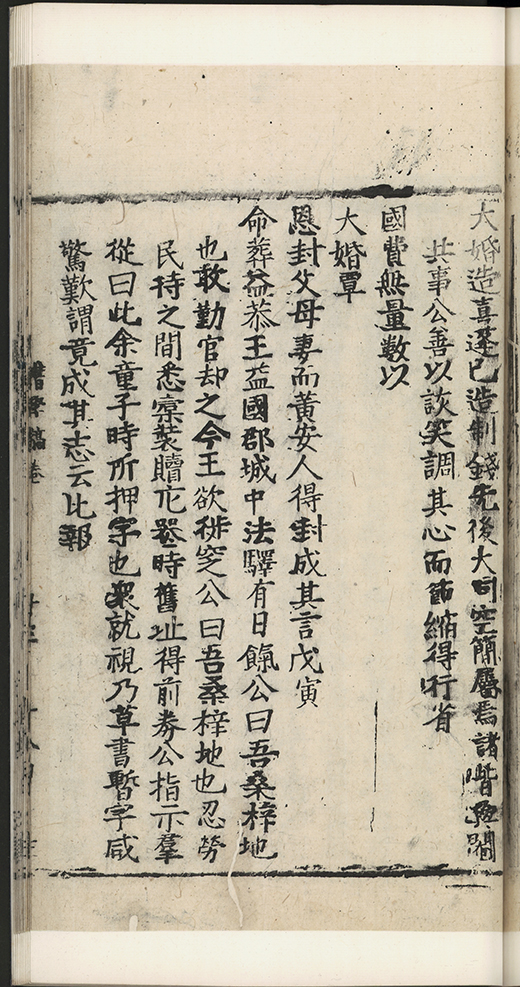 大婚造喜蓬已造制錢先後大司空簡屬焉諸𠾱與閹
共事公善以詼笑調其心而節縮得行省
國費無量數以
大婚覃
恩封父母妻而黃安人得封成其言戊寅
命葬益恭王益國郡城中法驛有日餼公曰吾桑梓地
也敢勤官却之今王欲徙窆公曰吾桑梓地也忍勞
民待之間悉橐裝贖庀器時舊址得前券公指示羣
從曰此余童子時所押字也衆就視乃草書暫字咸
驚歎謂竟成其志云比報
稿卷